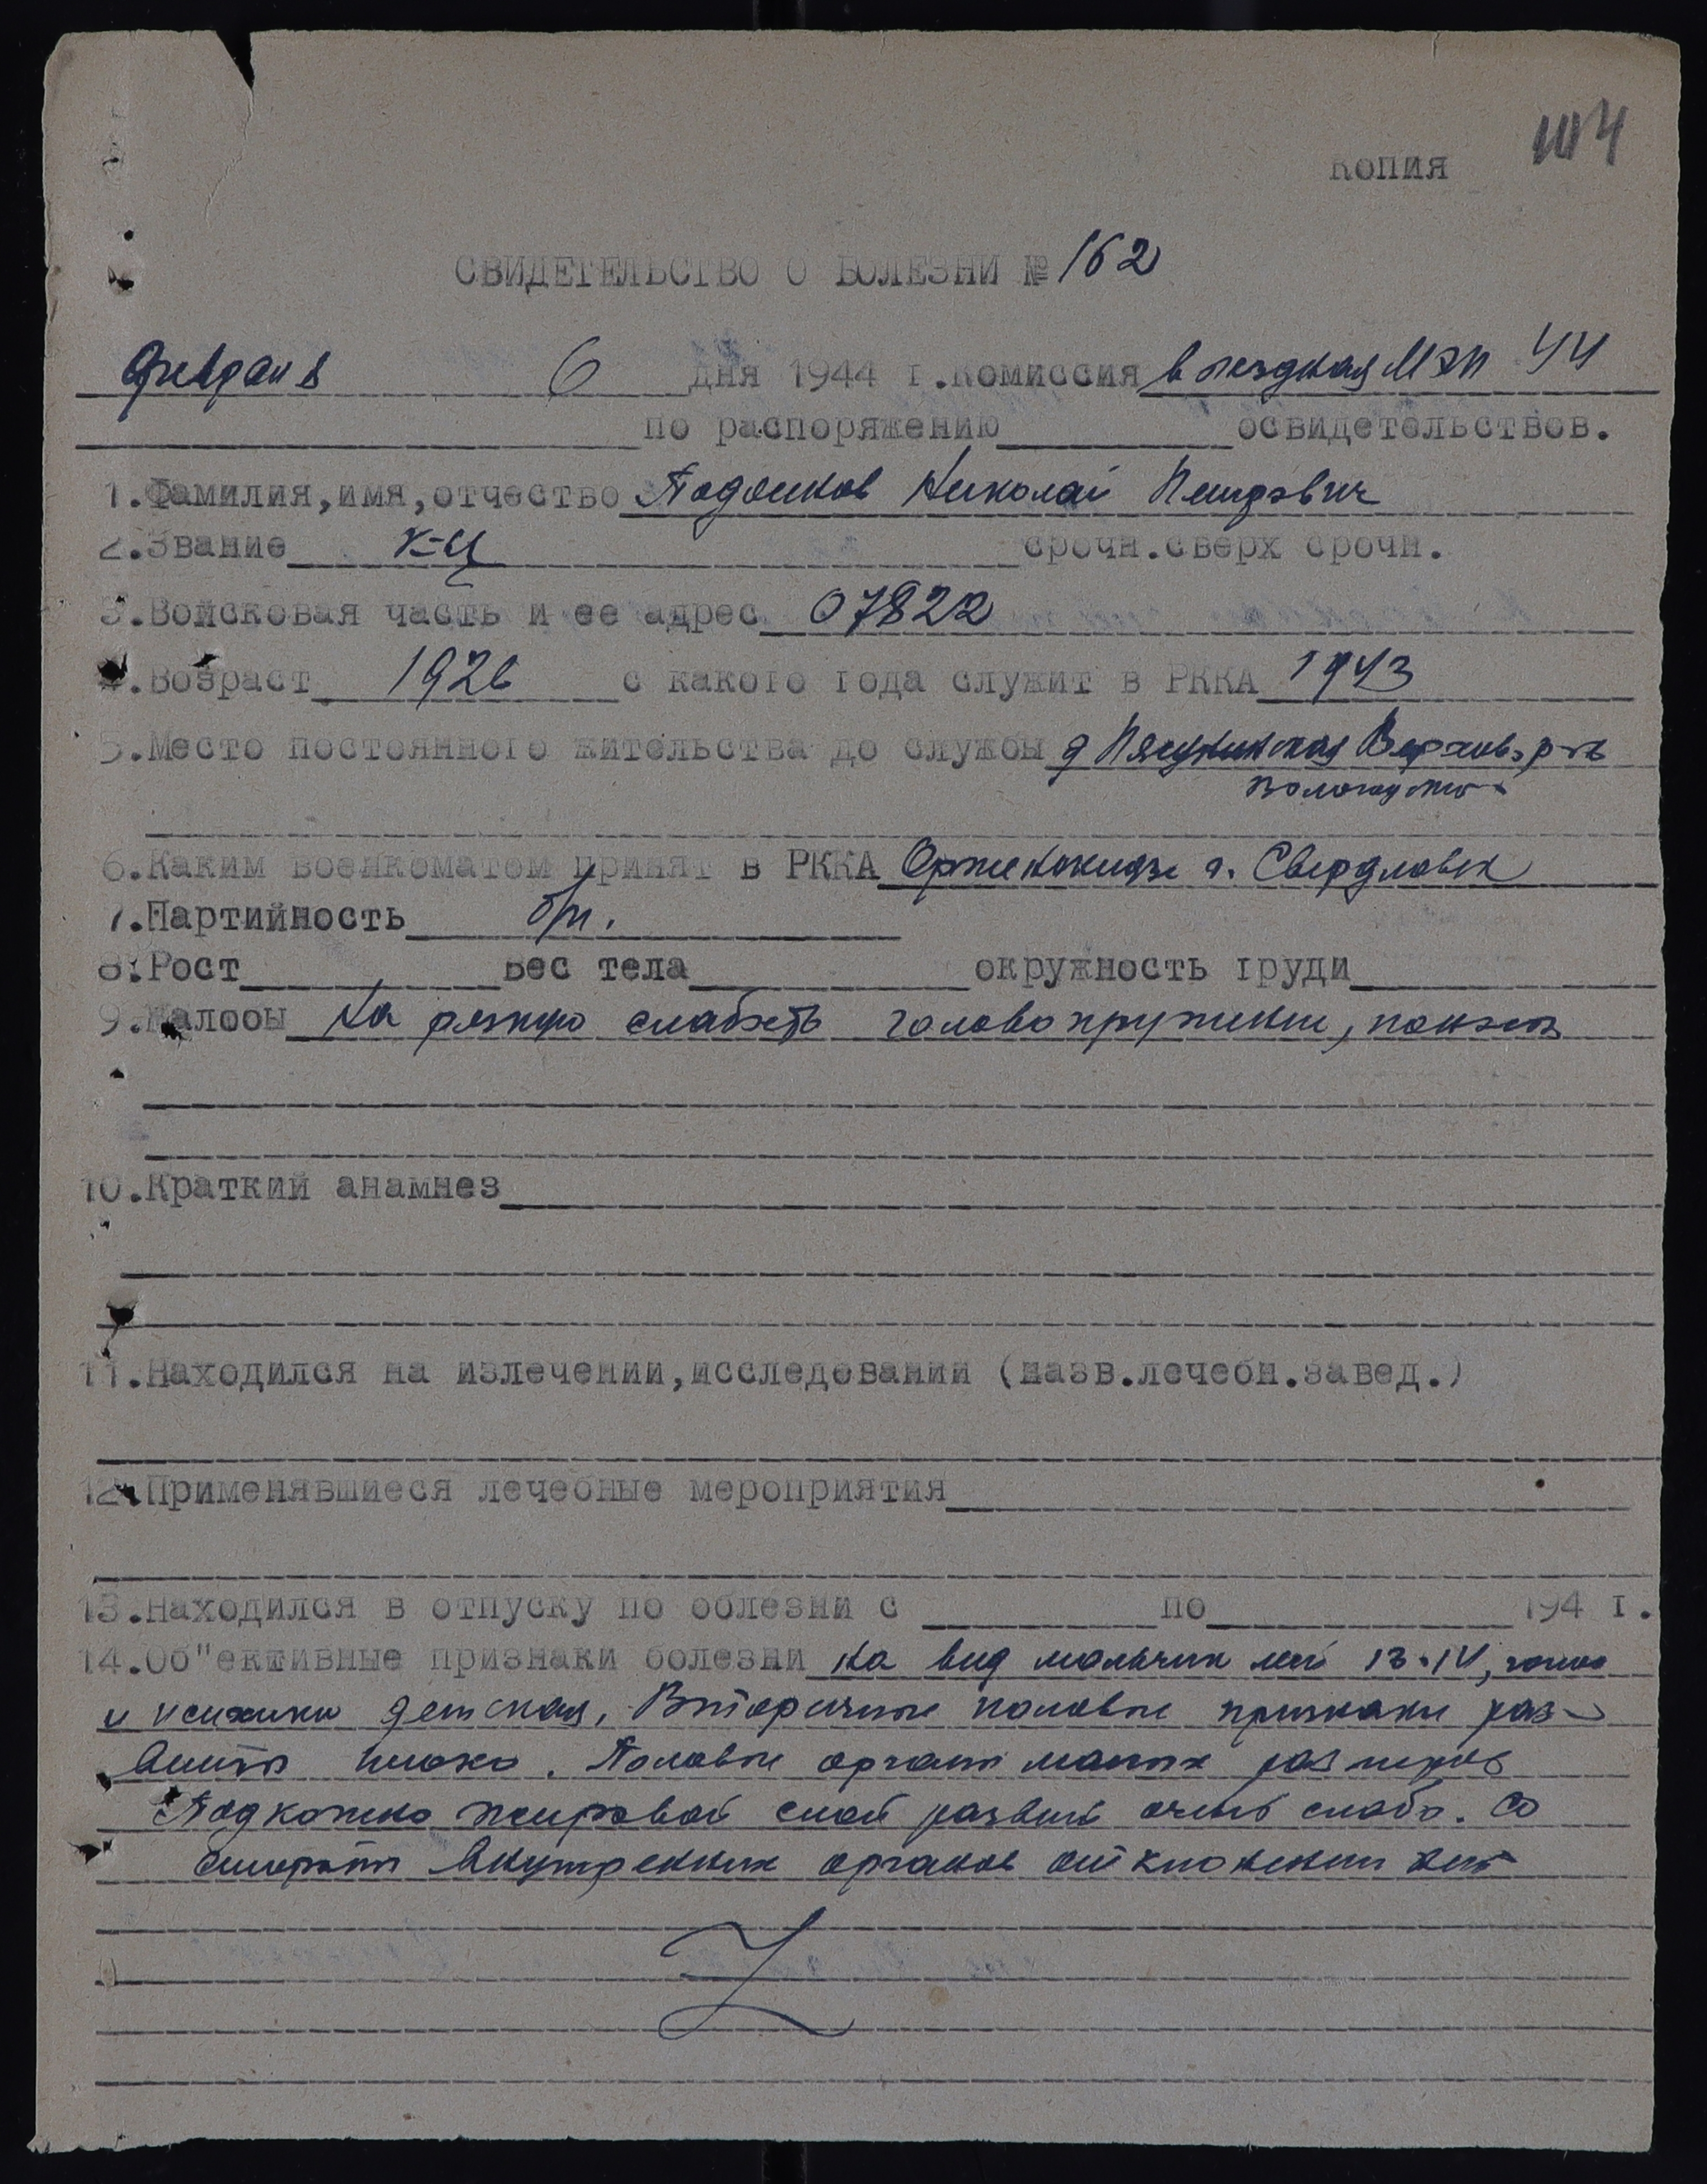 копия 104
СВИДЕТЕЛЬСТВО О БОЛЕЗНИ № 162
Февраля 6 дня 1944 г. Комиссия выездная МЭП 44
по распоряжению освидетельствов.
1. Фамилия, имя, отчество Подойков Николай Петрович
2. Звание к-ц срочн. сверх срочн.
3. Войсковая часть и ее адрес 07822
4. Возраст 1926 с какого года служит в РККА 1943
5. Место постоянного жительства до службы д Верхов. р-на
Вологодской
6. Каким военкоматом принят в РККА Орженокидзе г. Свердловск
7. Партийность б/п.
8. Рост вес тела окружность груди
9. Жалобы На резкую слабость головокружение, понос
10. Краткий анамнез
11. Находился на излечении, исследовании (назв. лечебн. завед.)
12. Применявшиеся лечебные мероприятия
13. Находился в отпуску по болезни с по 194 г.
14. Об"ективные признаки болезни На вид мальчик лет 13-14, голос
и психика детская. Вторичные половые признаки раз-
виты плохо. Половые органы малых размеров
Подкожно жировой слой развит очень слабо. Со
стороны внутренних органов отклонении нет